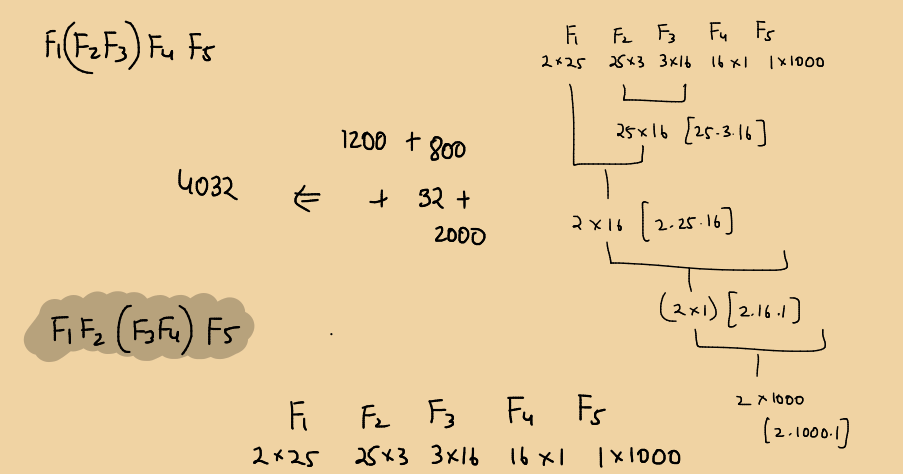 F₁(F₂F₃) F₄ F₅
F₁ F₂ F₃ F₄ F₅
2×25 25×3 3×16 16×1 1×1000
25×16 [25.3.16]
1200 + 800
4032 ⇐ + 32 +
2000
2×16 [2.25.16]
(2×1) [2.16.1]
F₁ F₂ (F₃F₄) F₅
2×1000
[2.1000.1]
F₁ F₂ F₃ F₄ F₅
2×25 25×3 3×16 16×1 1×1000